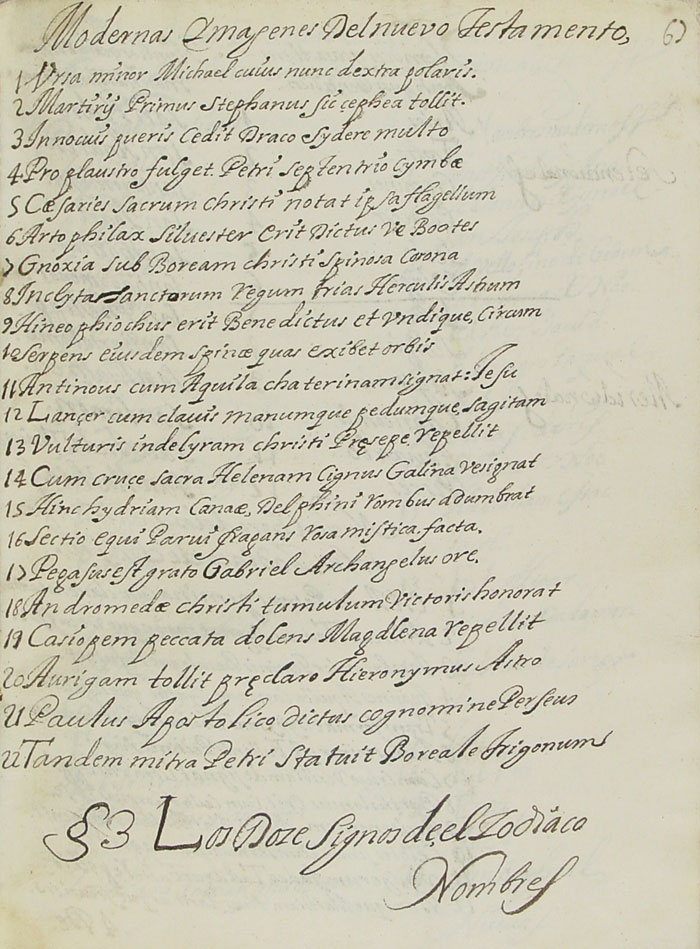 Modernas Ymagenes Del nuevo Testamento,
1 Vrsa minor Michael cuius nunc dextra polaris.
2 Martirij Primus Stephanus sic cephea tollit.
3 Innocuis pueris Cedit Draco sydere multo
4 Pro plaustro fulget. Petri septentrio cymbæ
5 Cæsaries sacrum christi notat ipsa flagellum
6 Artophilax Siluester Erit Dictus ve Bootes
7 Gnoxia sub Boream christi spinosa Corona
8 Inclyta sanctorum regum trias Herculis Astrum
9 Hineophiochus erit Benedictus et vndique, Circum
10 Serpens eiusdem spinæ quas exibet orbis
11 Antinous cum Aquila chaterinam signat: Iesu
12 Lançer cum clauis manumque pedumque, sagitam
13 Vulturis inde lyram christi Pręsepe repellit
14 Cum cruçe sacra Helenam Cignus Galina resignat
15 Hinc hydriam Canaæ, Delphini rombus ddumbrat
16 Sectio equi Parui fragans rosa mistica. facta.
17 Pegasus est grato Gabriel Archangelus ore.
18 Andromedæ christi tumulum Victoris honorat
19 Casiopem peccata dolens Magdlena repellit
20 Aurigam tollit pręclaro Hieronymus Astro
21 Paulus Apostolico dictus cognomine Perseus
22 Tandem mitra Petri statuit Boreale Trigonum
§3 Los Doze signos de el Zodiaco
Nombres